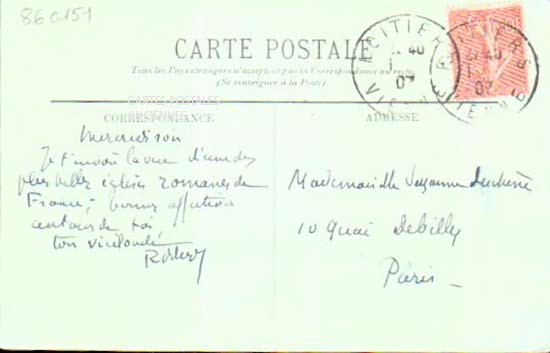 860151
CARTE POSTALE
Tous les Pays étrangers n'acceptent pas la Correspondance au recto.
(Se renseigner à la Poste)
CARTES POSTALES
ANCIENNES
CORRESPONDANCE
ADRESSE
POITIERS
VIENNE
07
POITIERS
VIENNE
07
Mercredi soir
Je t'envoie la vue d'une des
plus belles églises romanes de
France; bonne affection
autour de toi,
ton
Mademoiselle Suzanne Duchesne
10 Quai Debilly
Paris